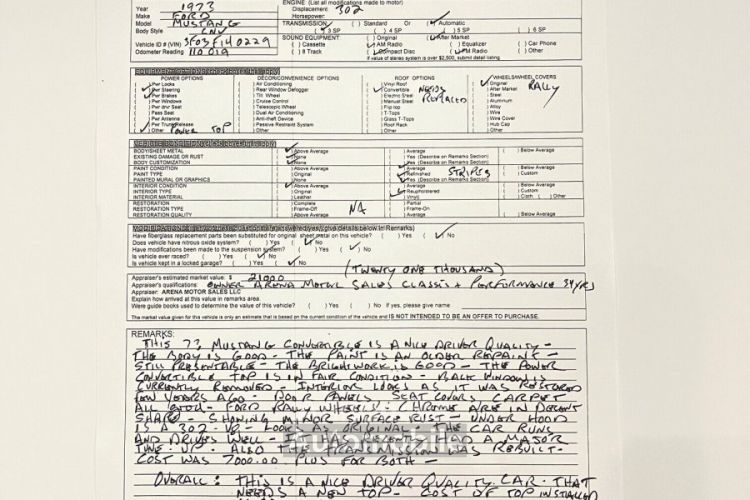 ENGINE (List all modifications made to motor)
Year 1973 Displacement: 302
Make FORD Horsepower:
Model MUSTANG TRANSMISSION ( ) Standard Or ( ) Automatic
Body Style CNV ( ) 3 SP ( ) 4 SP ( ) 5 SP ( ) 6 SP
SOUND EQUIPMENT: ( ) Original ( ) After Market
Vehicle ID # (VIN) 3F03F140229 ( ) Cassette ( ) AM Radio ( ) Equalizer ( ) Car Phone
Odometer Reading 110 019 ( ) 8 Track ( ) Compact Disc ( ) FM Radio ( ) Other
If value of stereo system is over $2,500, submit detail listing.
POWER OPTIONS DECOR/CONVENIENCE OPTIONS ROOF OPTIONS WHEELS/WHEEL COVERS
( ) Pwr Locks ( ) Air Conditioning ( ) Vinyl Roof ( ) Original RALLY
( ) Pwr Steering ( ) Rear Window Defogger ( ) Convertible NEEDS ( ) After Market
( ) Pwr Brakes ( ) Tilt Wheel ( ) Electric Steel REPLACED ( ) Steel
( ) Pwr Windows ( ) Cruise Control ( ) Manual Steel ( ) Aluminum
( ) Pwr dnr Seat ( ) Telescopic Wheel ( ) Flip top ( ) Alloy
( ) Pass Seat ( ) Dual Air Conditioning ( ) T-Tops ( ) Wire
( ) Pwr Antenna ( ) Anti-theft Device ( ) Glass T-Tops ( ) Wire Cover
( ) Pwr Trunk Release ( ) Passive Restraint System ( ) Roof Rack ( ) Hub Cap
( ) Other POWER TOP ( ) Other ( ) Other ( ) Other
BODY/SHEET METAL ( ) Above Average ( ) Average ( ) Below Average
EXISTING DAMAGE OR RUST ( ) None ( ) Yes (Describe on Remarks Section)
BODY CUSTOMIZATION ( ) None ( ) Yes (Describe on Remarks Section)
PAINT CONDITION ( ) Above Average ( ) Average ( ) Below Average
PAINT TYPE ( ) Original ( ) Refinished STRIPES ( ) Custom
PAINTED MURAL OR GRAPHICS ( ) None ( ) Yes (Describe on Remarks Section)
INTERIOR CONDITION ( ) Above Average ( ) Average ( ) Below Average
INTERIOR TYPE ( ) Original ( ) Reupholstered ( ) Custom
INTERIOR MATERIAL ( ) Leather ( ) Vinyl ( ) Cloth ( ) Other
RESTORATION ( ) Complete NA ( ) Partial
RESTORATION TYPE ( ) Frame-Off ( ) Frame-On
RESTORATION QUALITY ( ) Above Average ( ) Average ( ) Below Average
Have fiberglass replacement parts been substituted for original sheet metal on this vehicle? ( ) Yes ( ) No
Does vehicle have nitrous oxide system? ( ) Yes ( ) No
Have modifications been made to the suspension system? ( ) Yes ( ) No
Is vehicle ever raced? ( ) Yes ( ) No
Is vehicle kept in a locked garage? ( ) Yes ( ) No
(TWENTY ONE THOUSAND)
Appraiser's estimated market value: $ 21000
Appraiser's qualifications: OWNER ARENA MOTOR SALES CLASSIS + PERFORMANCE 34 YRS
Appraiser: ARENA MOTOR SALES LLC
Explain how arrived at this value in remarks area.
Were guide books used to determine the value of this vehicle? ( ) Yes ( ) No If yes, please give name
The market value given for this vehicle is only an estimate that is based on the current condition of the vehicle and IS NOT INTENDED TO BE AN OFFER TO PURCHASE.
REMARKS:
THIS 73 MUSTANG CONVERTIBLE IS A NICE DRIVER QUALITY -
THE BODY IS GOOD - THE PAINT IS AN OLDER REPAINT -
STILL PRESENTABLE - THE BRIGHTWORK IS GOOD - THE POWER
CONVERTIBLE TOP IS IN FAIR CONDITION - BACK WINDOW IS
CURRENTLY REMOVED - INTERIOR LOOKS AS IT WAS RESTORED
FEW YEARS AGO - DOOR PANELS, SEAT COVERS, CARPET
ALL GOOD - FORD RALLY WHEELS + CHROME ARE IN DECENT
SHAPE - SHOWING MINOR SURFACE RUST - UNDER HOOD
IS A 302 - V8 - LOOKS AS ORIGINAL THE CAR RUNS
AND DRIVES WELL - IT HAS RECENTLY HAD A MAJOR
TUNE-UP. ALSO THE TRANSMISSION WAS REBUILT -
COST WAS 7000.00 PLUS FOR BOTH -
OVERALL: THIS IS A NICE DRIVER QUALITY CAR THAT
NEEDS A NEW TOP - COST OF TOP INSTALLED